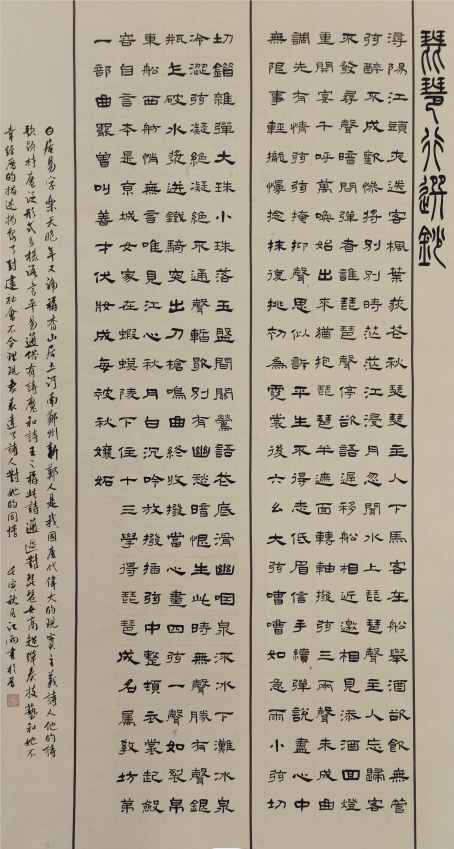 琵琶行選鈔
潯陽江頭夜送客楓葉荻花秋瑟瑟主人下馬客在船舉酒欲飲無管
弦醉不成歡慘將別別時茫茫江浸月忽聞水上琵琶聲主人忘歸客
不發尋聲暗問彈者誰琵琶聲停欲語遲移船相近邀相見添酒回燈
重開宴千呼萬喚始出來猶抱琵琶半遮面轉軸撥弦三兩聲未成曲
調先有情弦弦掩抑聲思似訴平生不得志低眉信手續彈說盡心中
無限事輕攏慢撚抹復挑初為霓裳後六幺大弦嘈嘈如急雨小弦切
切錯雜彈大珠小珠落玉盤間關鶯語花底滑幽咽泉流冰下灘冰泉
冷澀弦凝絕凝絕不通聲暫歇別有幽愁暗恨生此時無聲勝有聲銀
瓶乍破水漿迸鐵騎突出刀槍鳴曲終收撥當心畫四弦一聲如裂帛
東船西舫悄無言唯見江心秋月白沉吟放撥插弦中整頓衣裳起斂
容自言本是京城女家在蝦蟆陵下住十三學得琵琶成名屬教坊第
一部曲罷曾叫善才伏妝成每被秋孃妒
白居易字樂天晚年又號稱香山居士河南鄭州新鄭人是我國唐代偉大的現實主義詩人他的詩
歌題材廣泛形式多樣語言平易通俗有詩魔和詩王之稱此詩通過對琵琶女高超彈奏技藝和她不
幸經歷的描述揭露了對這社會不合理現象表達了詩人對她的同情 壬寅秋月江南書於